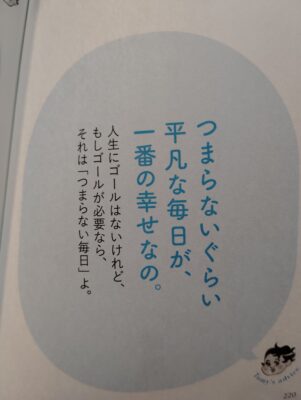 つまらないぐらい
平凡な毎日が、
一番の幸せなの。
人生にゴールはないけれど、
もしゴールが必要なら、
それは「つまらない毎日」よ。
Tomy's advice
220